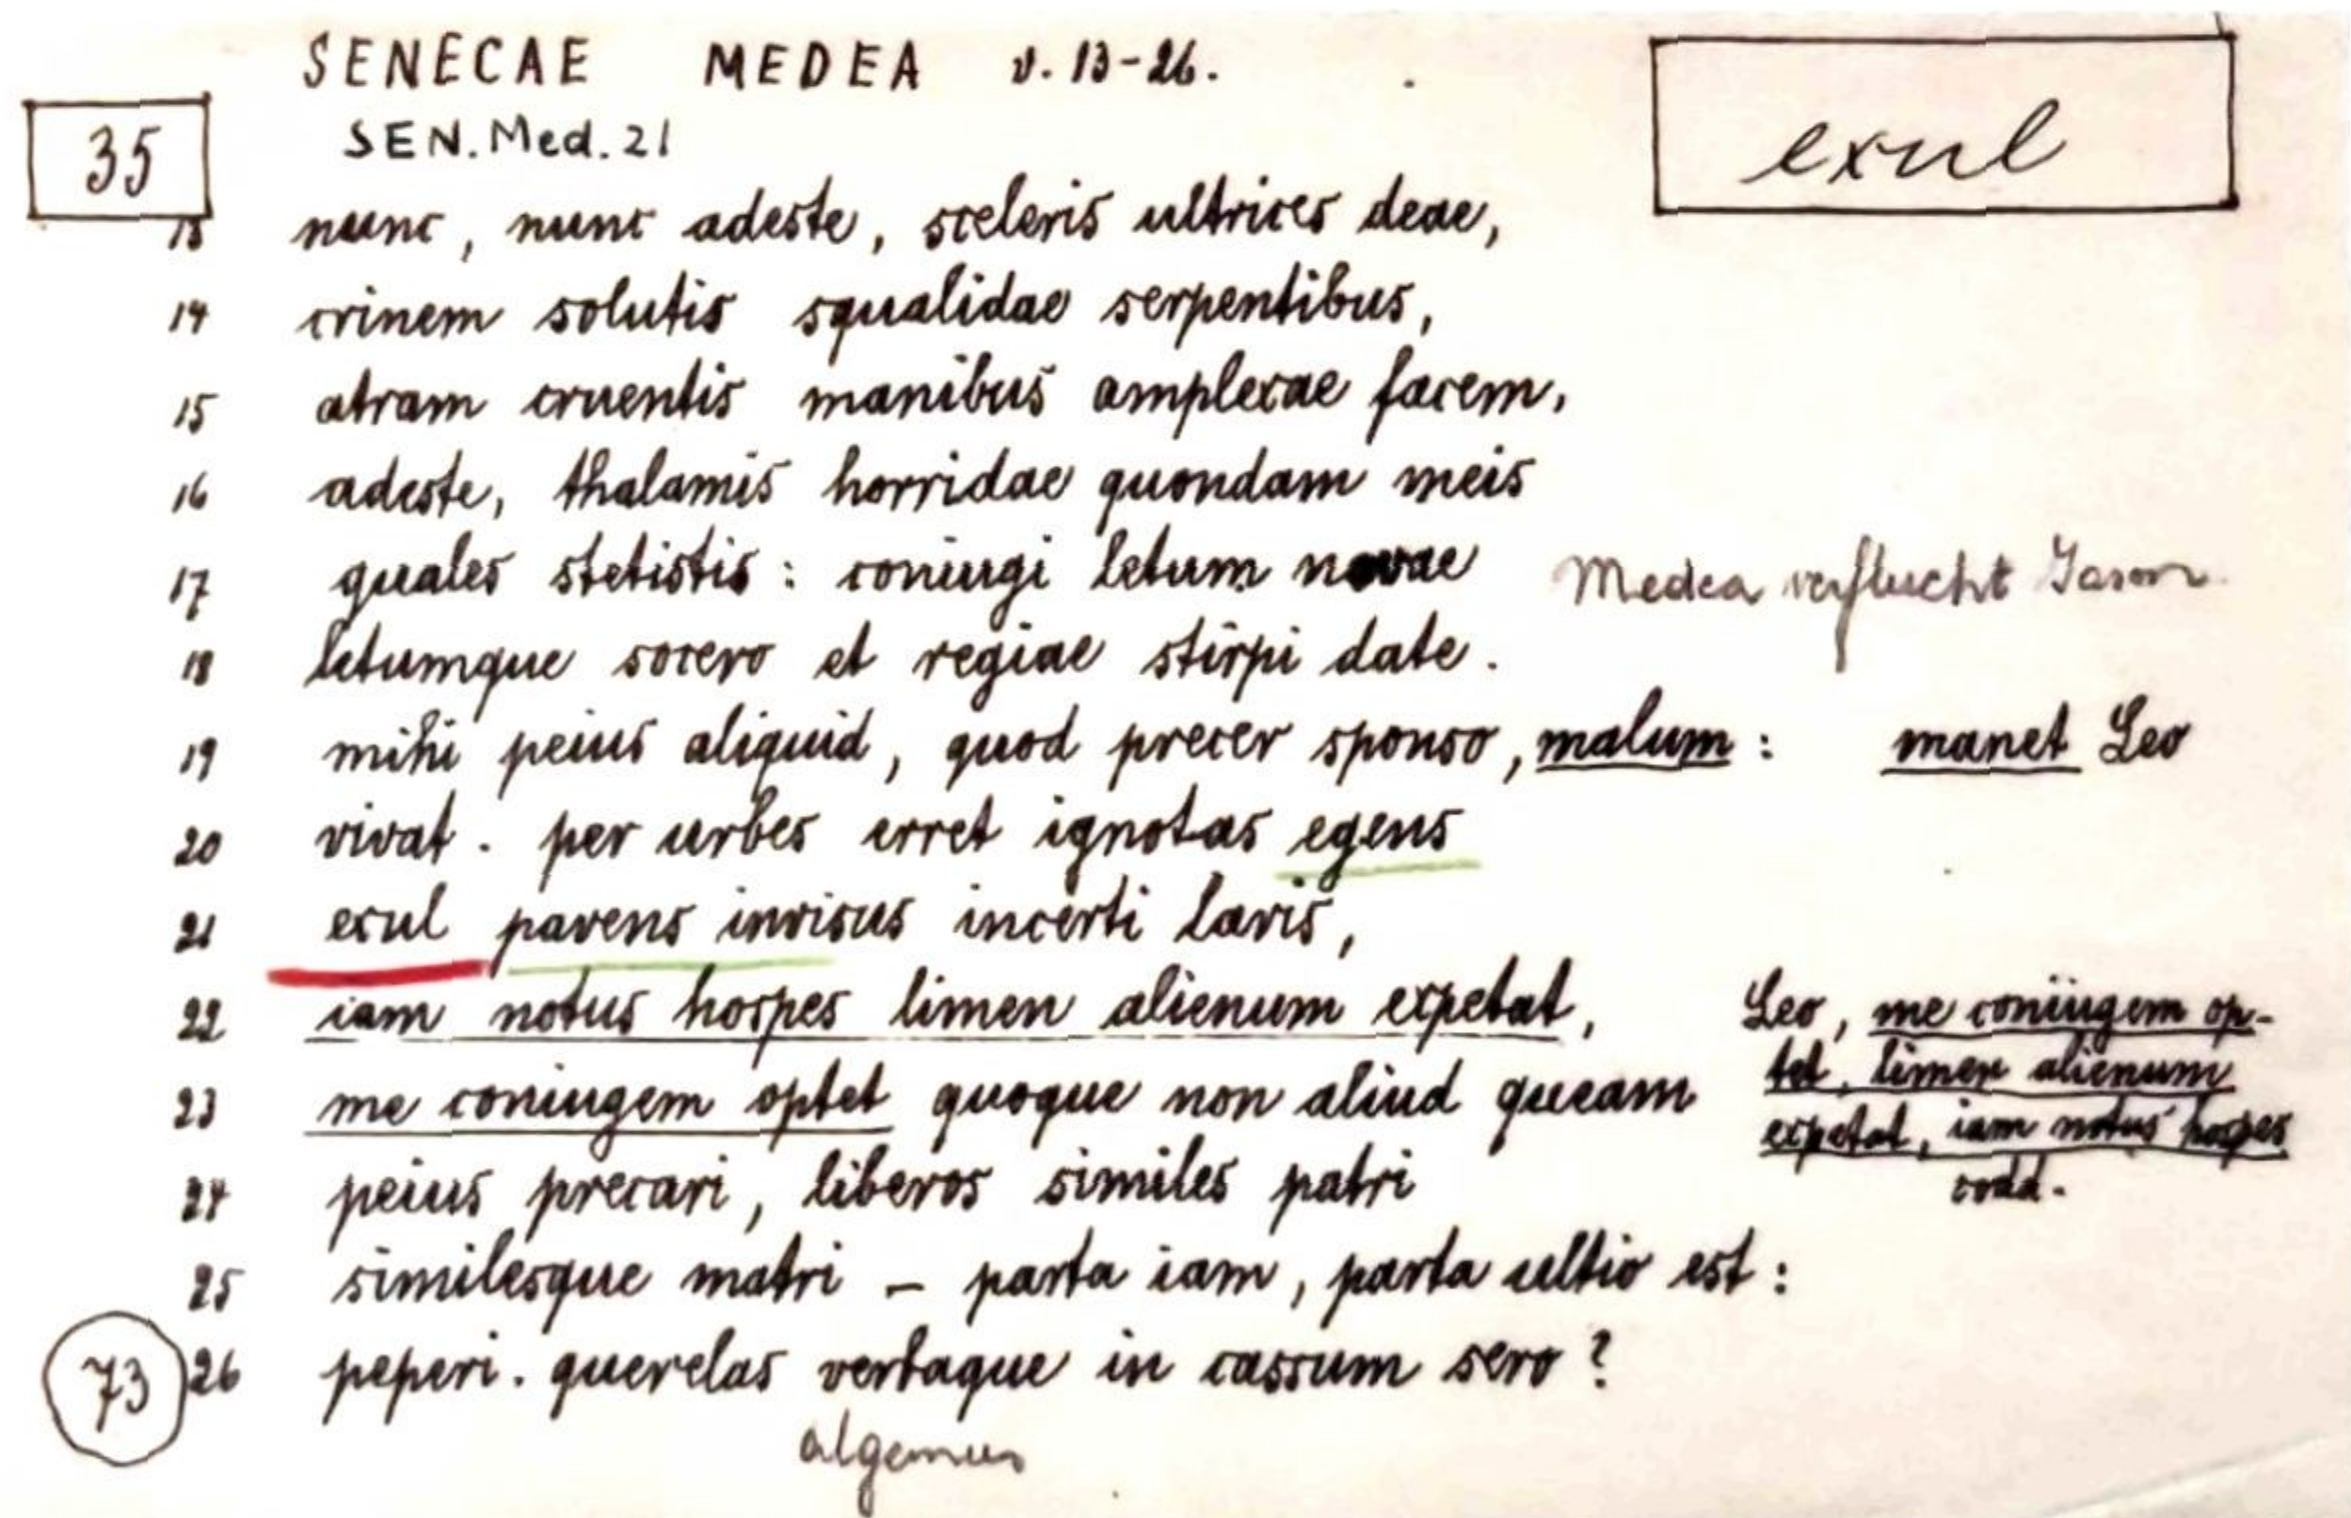 SENECAE MEDEA v. 13-26.
35
SEN. Med. 21
exul
13 nunc, nunc adeste, sceleris ultrices deae,
14 crinem solutis squalidae serpentibus,
15 atram cruentis manibus amplexae facem,
16 adeste, thalamis horridae quondam meis
17 quales stetistis: coniugi letum novae
Medea verflucht Jason
18 letumque socero et regiae stirpi date.
19 mihi peius aliquid, quod precer sponso, malum: manet Leo
20 vivat. per urbes erret ignotas egens
21 exul pavens invisus incerti laris,
22 iam notus hospes limen alienum expetat,
Leo, me coniugem op-
23 me coniugem optet quoque non aliud queam
tet, limen alienum
expetat, iam notus hospes
24 peius precari, liberos similes patri
codd.
25 similesque matri - parta iam, parta ultio est:
73 26 peperi. querelas verbaque in cassum sero?